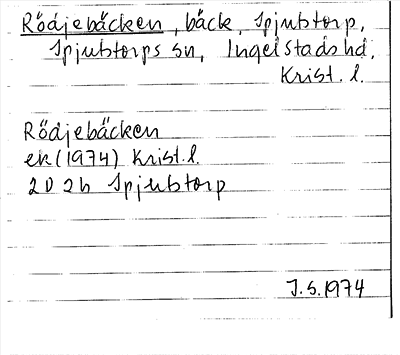 Rödjebäcken, bäck, Spjutstorp,
Spjutstorps sn, Ingelstads hd,
Krist. l.
Rödjebäcken
ek (1974) Krist. l.
2D 2h Spjutstorp
J.S. 1974